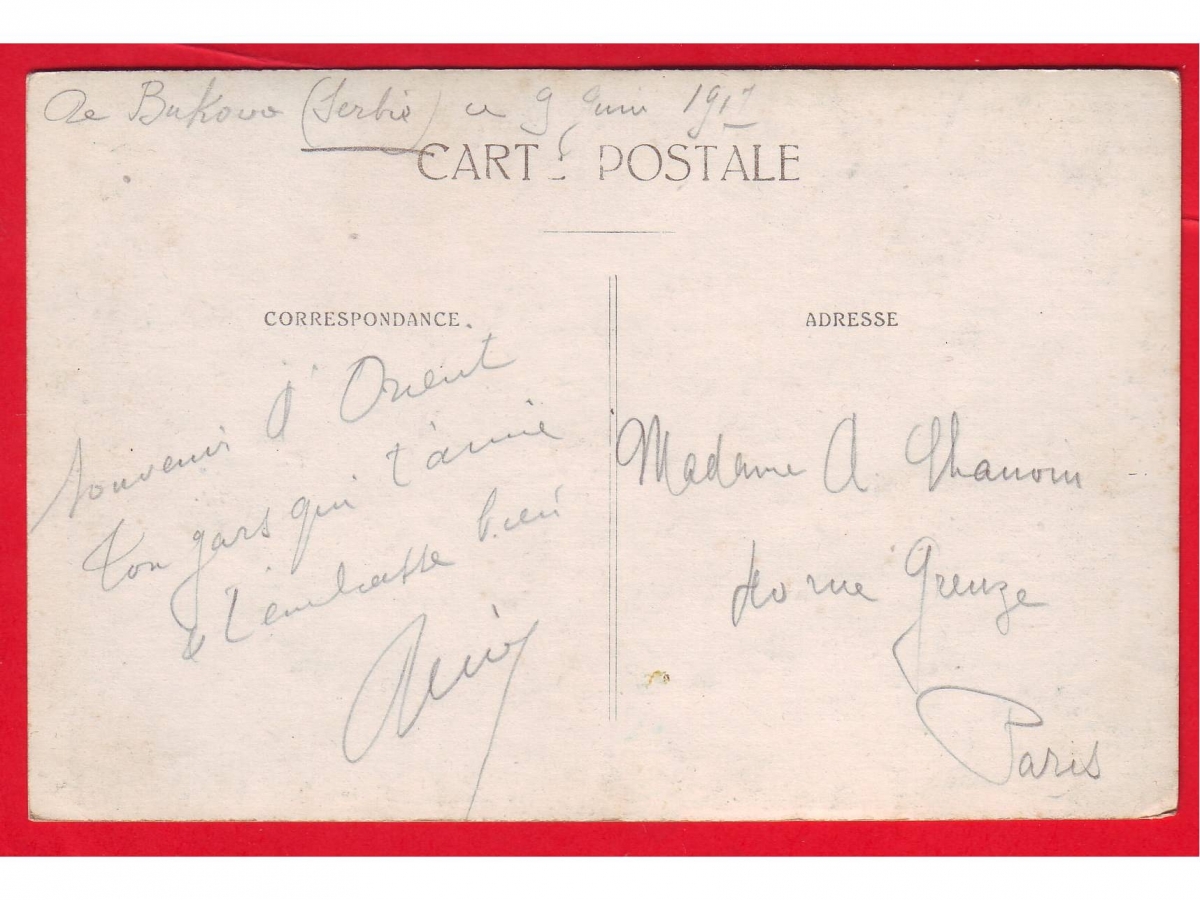 De Bukovo (Serbie) ce 9 Juin 1917
CARTE POSTALE
CORRESPONDANCE
ADRESSE
Souvenir d'Orient
Ton gars qui t'aime
& t'embrasse bien
Madame A Chanoin
rue Greuze
Paris